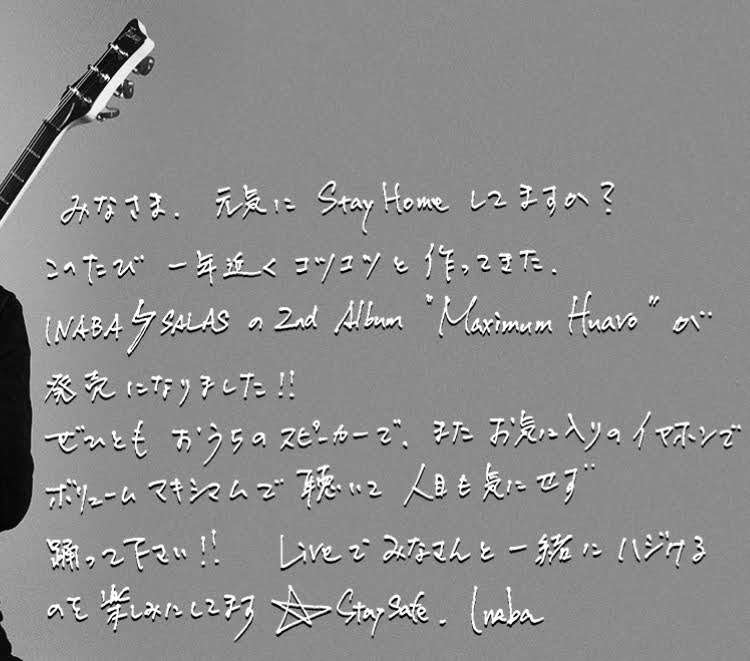 みなさま、元気に Stay Home してますか？
このたび 一年近く コツコツと 作ってきた、
INABA⚡SALAS の 2nd Album "Maximum Huavo" が
発売になりました!!
ぜひとも おうちのスピーカーで、また お気に入りのイヤホンで
ボリュームマキシマムで 聴いて 人目も気にせず
踊って下さい!! Liveで みなさんと 一緒に ハジける
のを 楽しみにしてます ☆ Stay Safe. Inaba